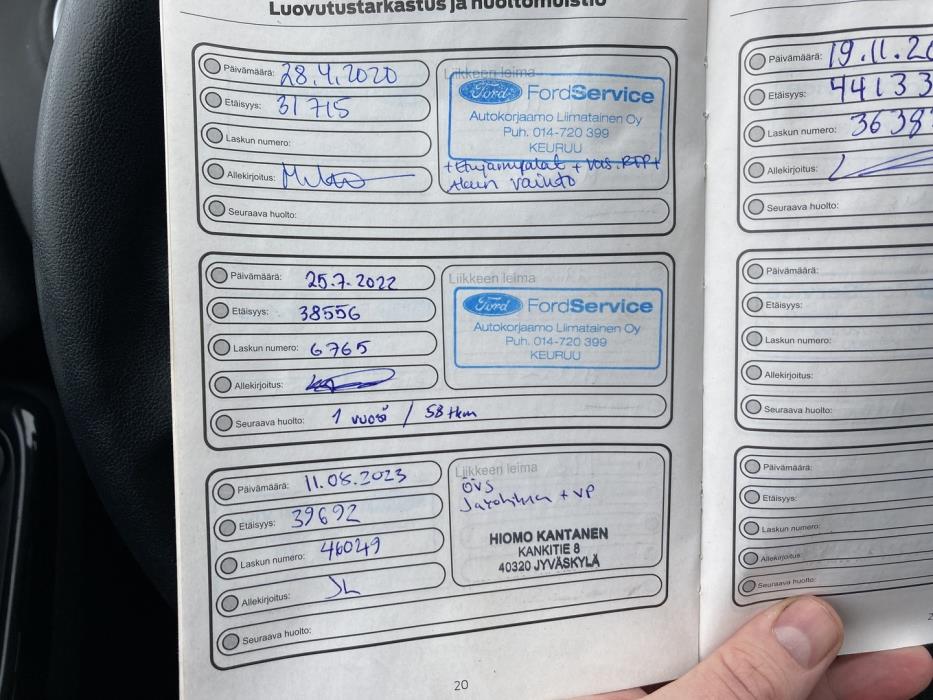 Luovutustarkastus ja huoltomuistio
Päivämäärä: 28.4.2020
Etäisyys: 31715
Laskun numero:
Allekirjoitus:
Seuraava huolto:
Liikkeen leima
Ford FordService
Autokorjaamo Liimatainen Oy
Puh. 014-720 399
KEURUU
+ Etujarrupalat + vas. RTP +
vaihto
Päivämäärä: 25.7.2022
Etäisyys: 38556
Laskun numero: 6765
Allekirjoitus:
Seuraava huolto: 1 vuosi / 58 tkm
Liikkeen leima
Ford FordService
Autokorjaamo Liimatainen Oy
Puh. 014-720 399
KEURUU
Päivämäärä: 11.08.2023
Etäisyys: 39692
Laskun numero: 46049
Allekirjoitus: JL
Seuraava huolto:
Liikkeen leima
ÖVS
+ VP
HIOMO KANTANEN
KANKITIE 8
40320 JYVÄSKYLÄ
20
Päivämäärä: 19.11.20
Etäisyys: 44133
Laskun numero: 3638
Allekirjoitus:
Seuraava huolto:
Päivämäärä:
Etäisyys:
Laskun numero:
Allekirjoitus:
Seuraava huolto:
Päivämäärä:
Etäisyys:
Laskun numero:
Allekirjoitus:
Seuraava huolto: